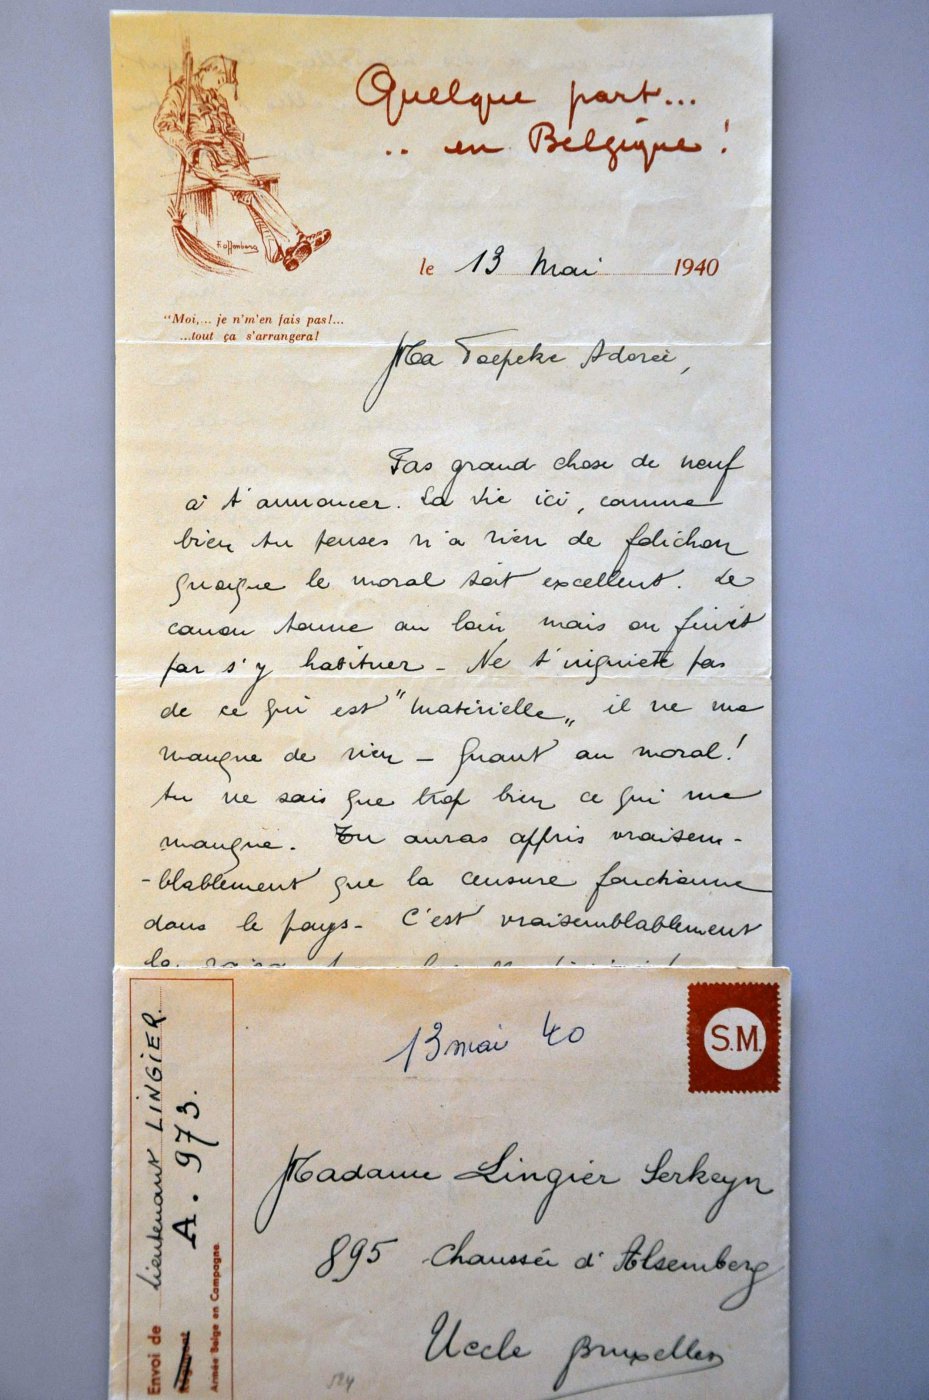 Quelque part...
.. en Belgique!
le 13 Mai 1940
"Moi,... je n'm'en fais pas!...
...tout ça s'arrangera!
Ma Toepeke Adorée,
Pas grand chose de neuf
à t'annoncer. La vie ici, comme
bien tu penses n'a rien de folichon
quoique le moral soit excellent. Le
canon tonne au loin mais on finit
par s'y habituer - Ne t'inquiete pas
de ce qui est "materielle" il ne me
manque de rien - Quant au moral!
tu ne sais que trop bien ce qui me
manque. Tu auras appris vraisem-
-blablement que la censure fonctionne
dans le pays - C'est vraisemblablement
la
S.M.
13 mai 40
Madame Lingier Serkeyn
895 Chaussée d'Alsemberg
Uccle Bruxelles
Envoi de Lieutenant LINGIER.
A. 973.
Armée Belge en Campagne